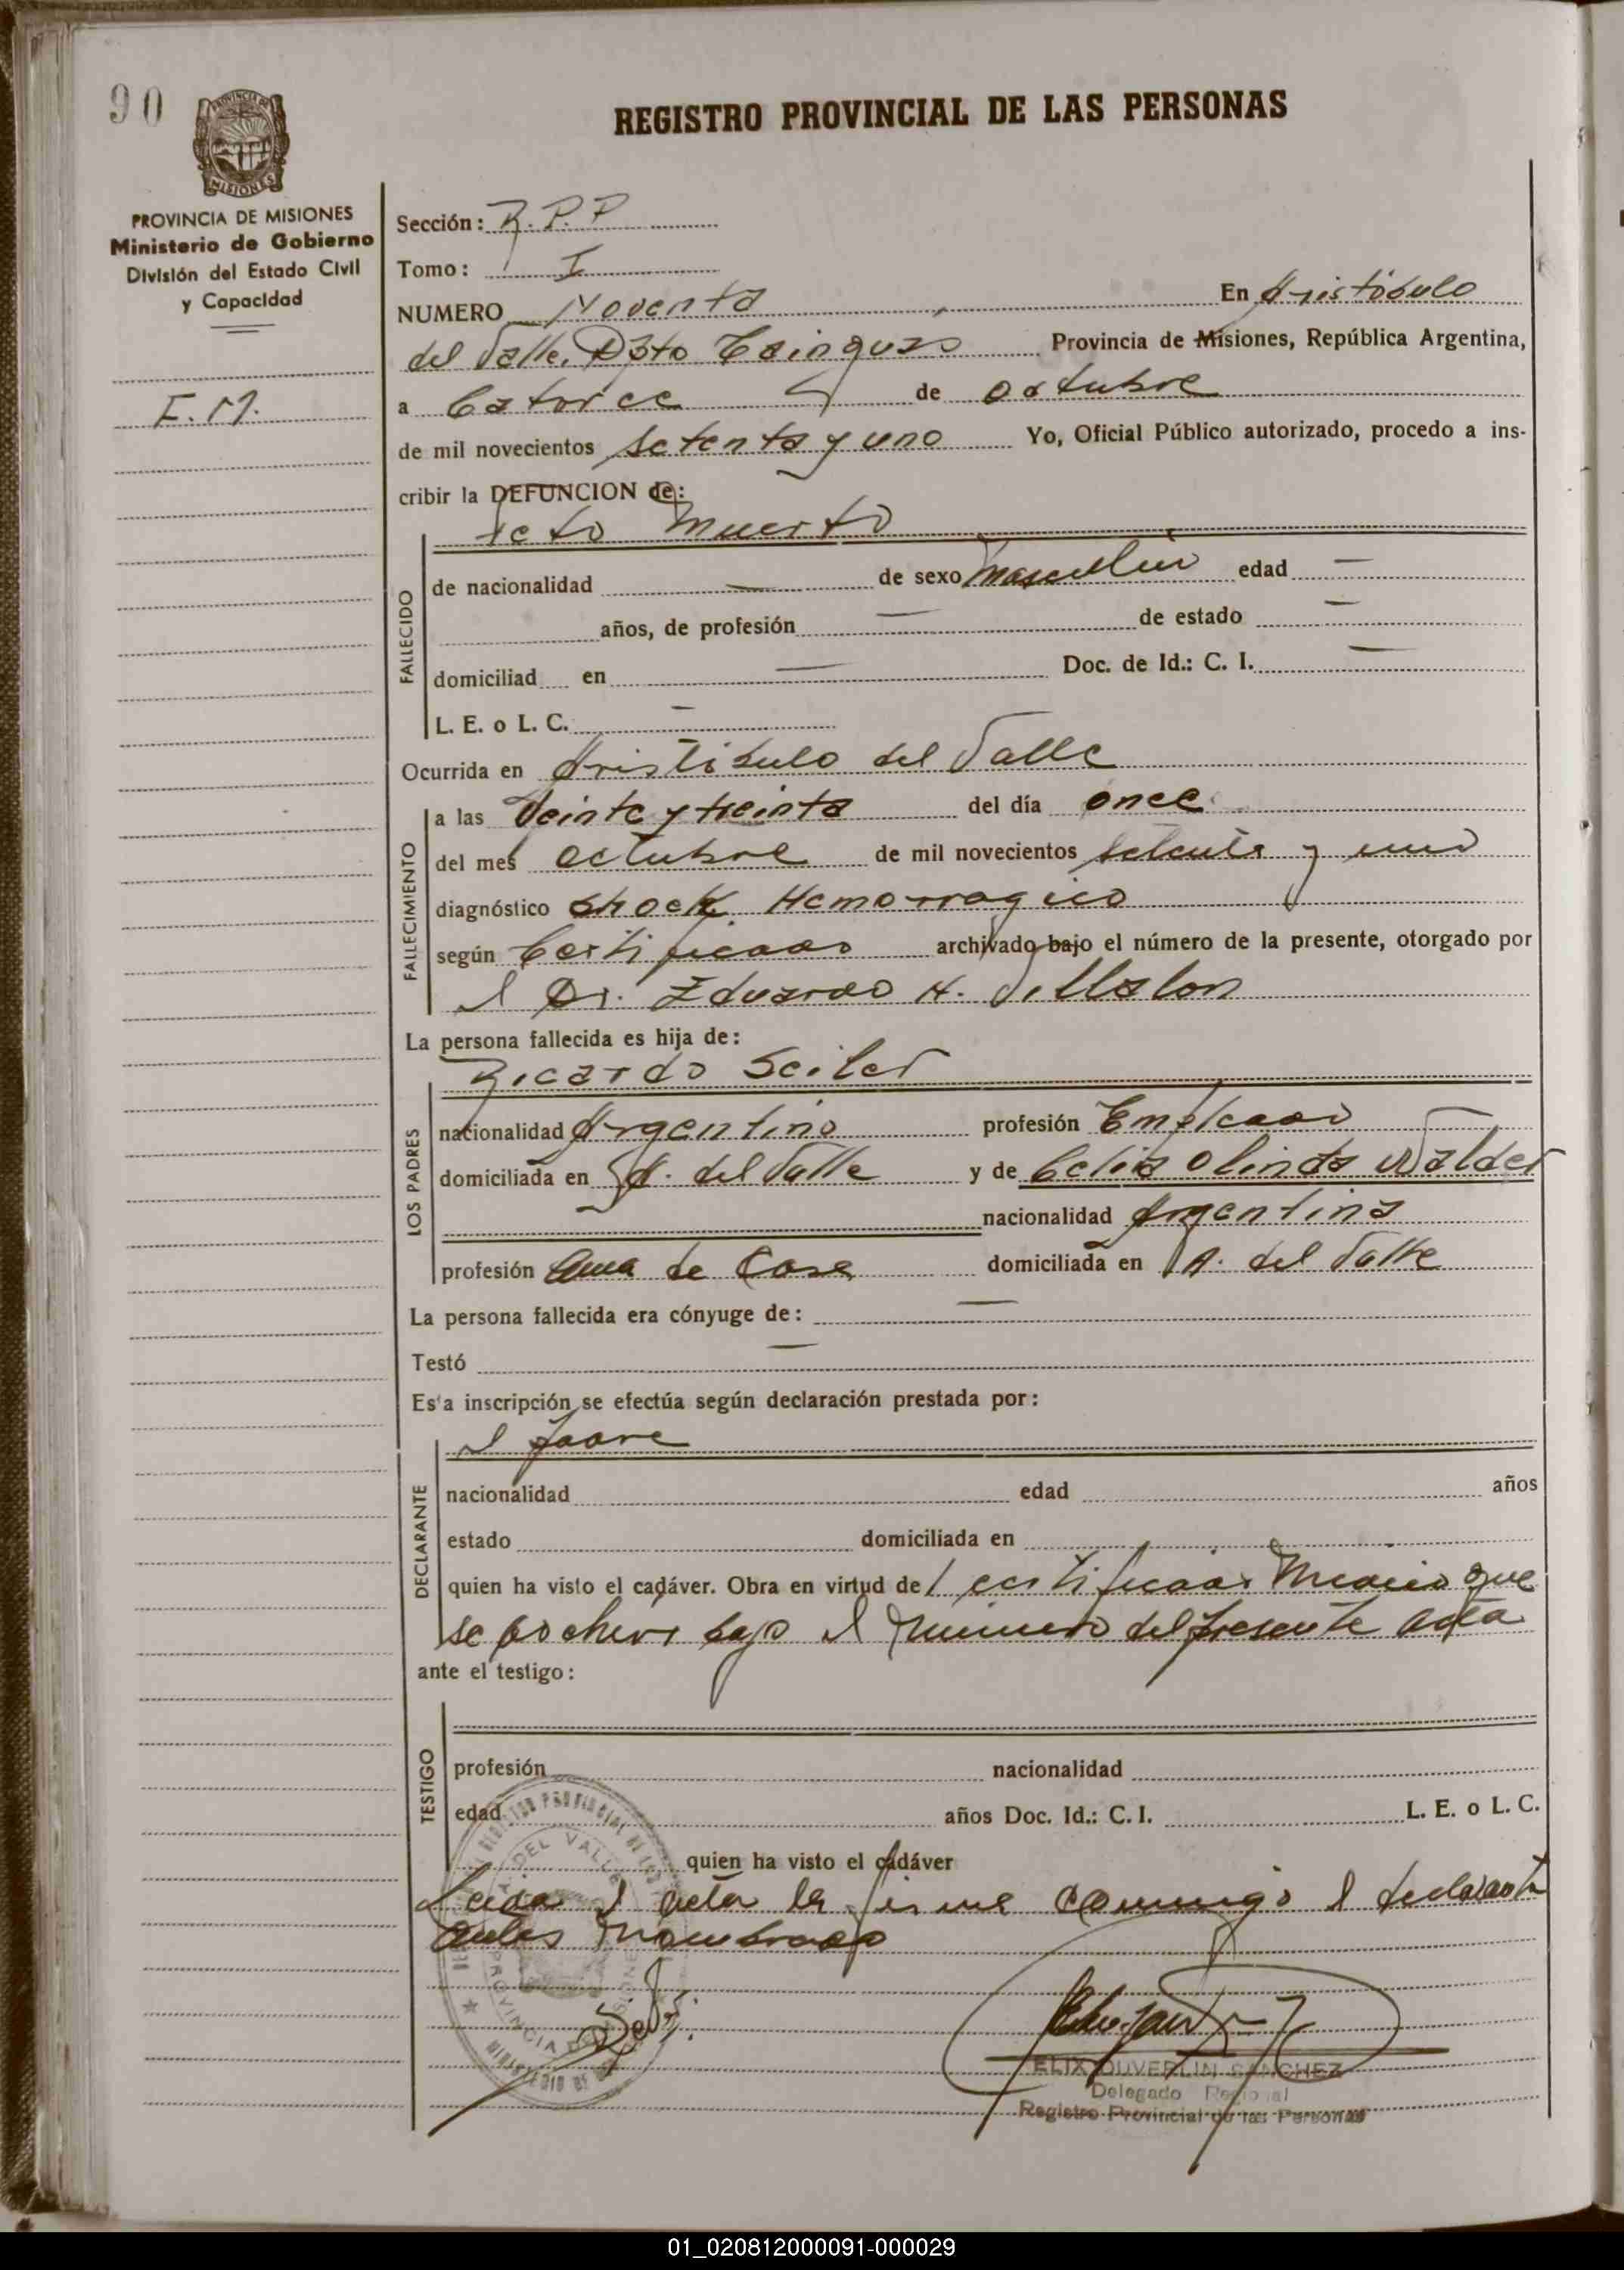 90
PROVINCIA DE MISIONES
PROVINCIA DE MISIONES
Ministerio de Gobierno
División del Estado Civil
y Capacidad
F. M.
REGISTRO PROVINCIAL DE LAS PERSONAS
Sección: R. P. P
Tomo: I
NUMERO Noventa En Aristóbulo
del Valle, Dpto Cainguas Provincia de Misiones, República Argentina,
a Catorce de octubre
de mil novecientos setenta y uno Yo, Oficial Público autorizado, procedo a ins-
cribir la DEFUNCION de:
FALLECIDO
feto muerto
de nacionalidad — de sexo masculino edad —
años, de profesión — de estado —
domiciliad en — Doc. de Id.: C. I. —
L. E. o L. C. —
Ocurrida en Aristóbulo del Valle
FALLECIMIENTO
a las Veinte y treinta del día once
del mes octubre de mil novecientos setenta y uno
diagnóstico shock Hemorragico
según Certificado archivado bajo el número de la presente, otorgado por
el Dr. Eduardo H. Villalon
La persona fallecida es hija de:
LOS PADRES
Ricardo Seiler
nacionalidad Argentino profesión Empleado
domiciliada en A. del Valle y de Celia Olinda Walder
nacionalidad Argentina
profesión Ama de Casa domiciliada en A. del Valle
La persona fallecida era cónyuge de: —
Testó —
Es'a inscripción se efectúa según declaración prestada por:
DECLARANTE
el padre
nacionalidad edad años
estado domiciliada en
quien ha visto el cadáver. Obra en virtud de certificado Medico que
se archiva bajo el numero del presente acta
ante el testigo:
TESTIGO
profesión nacionalidad
edad años Doc. Id.: C. I. L. E. o L. C.
quien ha visto el cadáver
Leida el acta la firma conmigo el declarante
antes nombrado
A. DEL VALLE
PROVINCIA DE MISIONES
ELIX DUVERLIN SANCHEZ
Delegado Regional
Registro Provincial de las Personas
01_020812000091-000029